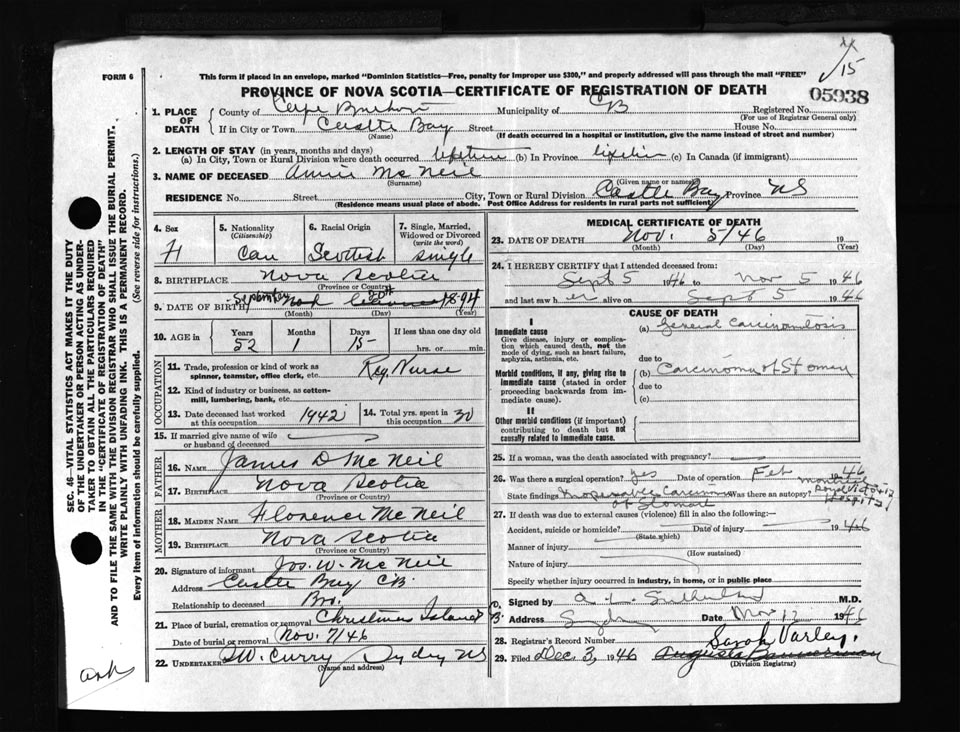 FORM 6
This form if placed in an envelope, marked "Dominion Statistics—Free, penalty for improper use $300," and properly addressed will pass through the mail "FREE"
15
PROVINCE OF NOVA SCOTIA—CERTIFICATE OF REGISTRATION OF DEATH
05938
SEC. 46—VITAL STATISTICS ACT MAKES IT THE DUTY
OF THE UNDERTAKER OR PERSON ACTING AS UNDER-
TAKER TO OBTAIN ALL THE PARTICULARS REQUIRED
IN THE "CERTIFICATE OF REGISTRATION OF DEATH"
AND TO FILE THE SAME WITH THE DIVISION REGISTRAR WHO SHALL ISSUE THE BURIAL PERMIT.
WRITE PLAINLY WITH UNFADING INK. THIS IS A PERMANENT RECORD.
Every item of information should be carefully supplied. (See reverse side for instructions.)
1. PLACE OF DEATH
County of Cape Breton Municipality of CB Registered No.
(For use of Registrar General only)
If in City or Town Castle Bay Street House No.
(Name) (If death occurred in a hospital or institution, give the name instead of street and number)
2. LENGTH OF STAY (in years, months and days)
(a) In City, Town or Rural Division where death occurred lifetime (b) In Province lifetime (c) In Canada (if immigrant)
3. NAME OF DECEASED Annie Mc Neil
(Surname) (Given name or names)
RESIDENCE No. Street City, Town or Rural Division Castle Bay Province NS
(Residence means usual place of abode. Post Office Address for residents in rural parts not sufficient)
4. Sex
5. Nationality (Citizenship) Can
6. Racial Origin Scottish
7. Single, Married, Widowed or Divorced (write the word) single
8. BIRTHPLACE Nova Scotia
(Province or Country)
9. DATE OF BIRTH September 1894
(Month) (Day) (Year)
10. AGE in Years Months Days If less than one day old
52 1 15 hrs. or min.
OCCUPATION
11. Trade, profession or kind of work as spinner, teamster, office clerk, etc. Reg. Nurse
12. Kind of industry or business, as cotten-mill, lumbering, bank, etc.
13. Date deceased last worked at this occupation 1942
14. Total yrs. spent in this occupation 30
15. If married give name of wife or husband of deceased
FATHER
16. NAME James D Mc Neil
17. BIRTHPLACE Nova Scotia
(Province or Country)
MOTHER
18. MAIDEN NAME Florence Mc Neil
19. BIRTHPLACE Nova Scotia
(Province or Country)
20. Signature of informant Jos. W. Mc Neil
Address Castle Bay CB
Relationship to deceased Bro.
21. Place of burial, cremation or removal Christmas Island
Date of burial or removal Nov. 7/46
22. UNDERTAKER W. Curry Sydney NS
(Name and address)
MEDICAL CERTIFICATE OF DEATH
23. DATE OF DEATH Nov. 5/46 19
(Month) (Day) (Year)
24. I HEREBY CERTIFY that I attended deceased from:
Sept 5 1946 to Nov 5 1946
and last saw her alive on Sept 5 1946
CAUSE OF DEATH
I
Immediate cause
Give disease, injury or complication which caused death, not the mode of dying, such as heart failure, asphyxia, asthenia, etc.
(a) General Carcinomatosis
due to
Morbid conditions, if any, giving rise to immediate cause (stated in order proceeding backwards from immediate cause).
(b) Carcinoma of Stomach
due to
(c)
II
Other morbid conditions (if important) contributing to death but not causally related to immediate cause.
25. If a woman, was the death associated with pregnancy?
26. Was there a surgical operation? yes Date of operation Feb 1946
Montreal
Royal Victoria
Hospital
State findings Inoperable Carcinoma of Stomach Was there an autopsy?
27. If death was due to external causes (violence) fill in also the following:—
Accident, suicide or homicide? Date of injury 1946
(State which)
Manner of injury
(How sustained)
Nature of injury
Specify whether injury occurred in industry, in home, or in public place
Signed by A. L. Sutherland M.D.
Address Sydney Date Nov 12 1946
28. Registrar's Record Number
Sarah Varley.
29. Filed Dec. 3, 1946 Augusta Bannerman
(Division Registrar)